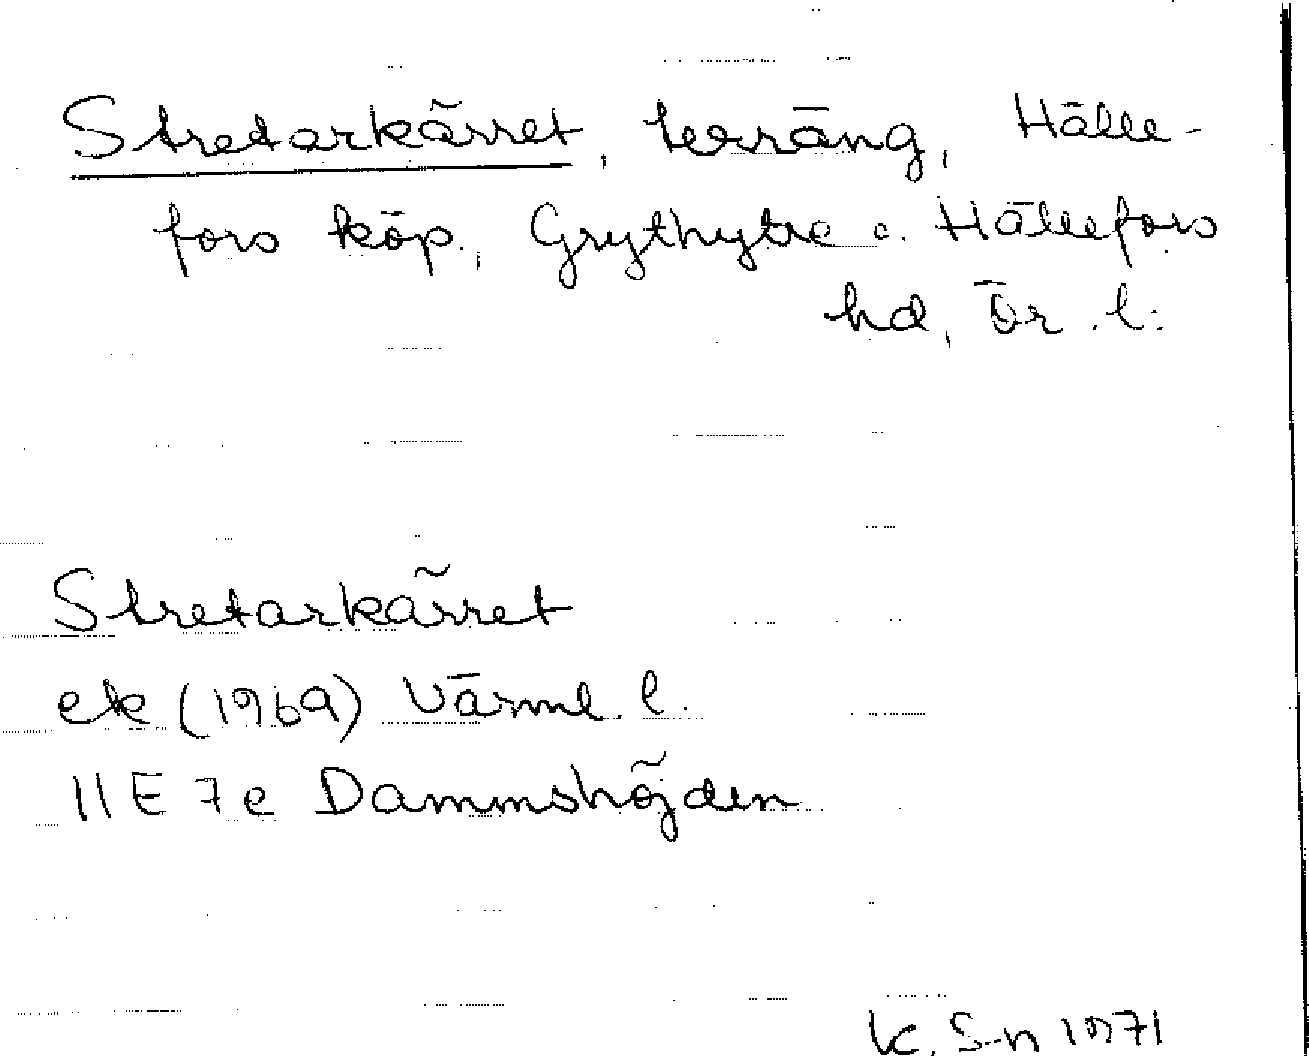 Stretarkärret, terräng, Hälle-
fors köp., Grythytte o. Hällefors
hd, Ör. l.
Stretarkärret
ek (1969) Värml. l.
11E 7e Dammshöjden
K. S-n 1971